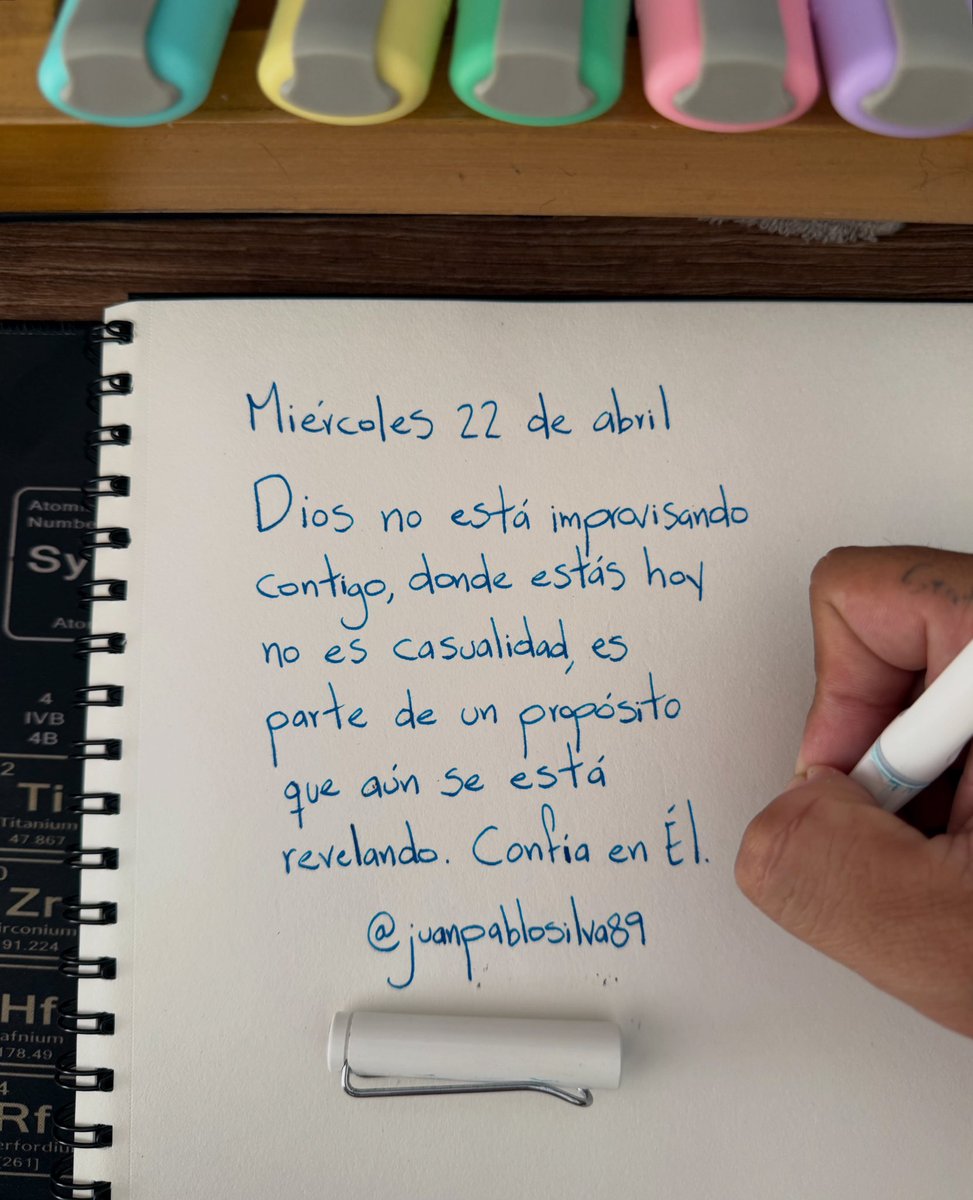 Miércoles 22 de abril
Dios no está improvisando
contigo, donde estás hoy
no es casualidad, es
parte de un propósito
que aún se está
revelando. Confía en Él.
@juanpablosilva89
Atom
Numbe
Sy
Ato
4
IVB
4B
2
Ti
Titanium
47.867
Zr
irconium
91.224
Hf
afnium
178.49
4
Rf
erfordiu
[261]